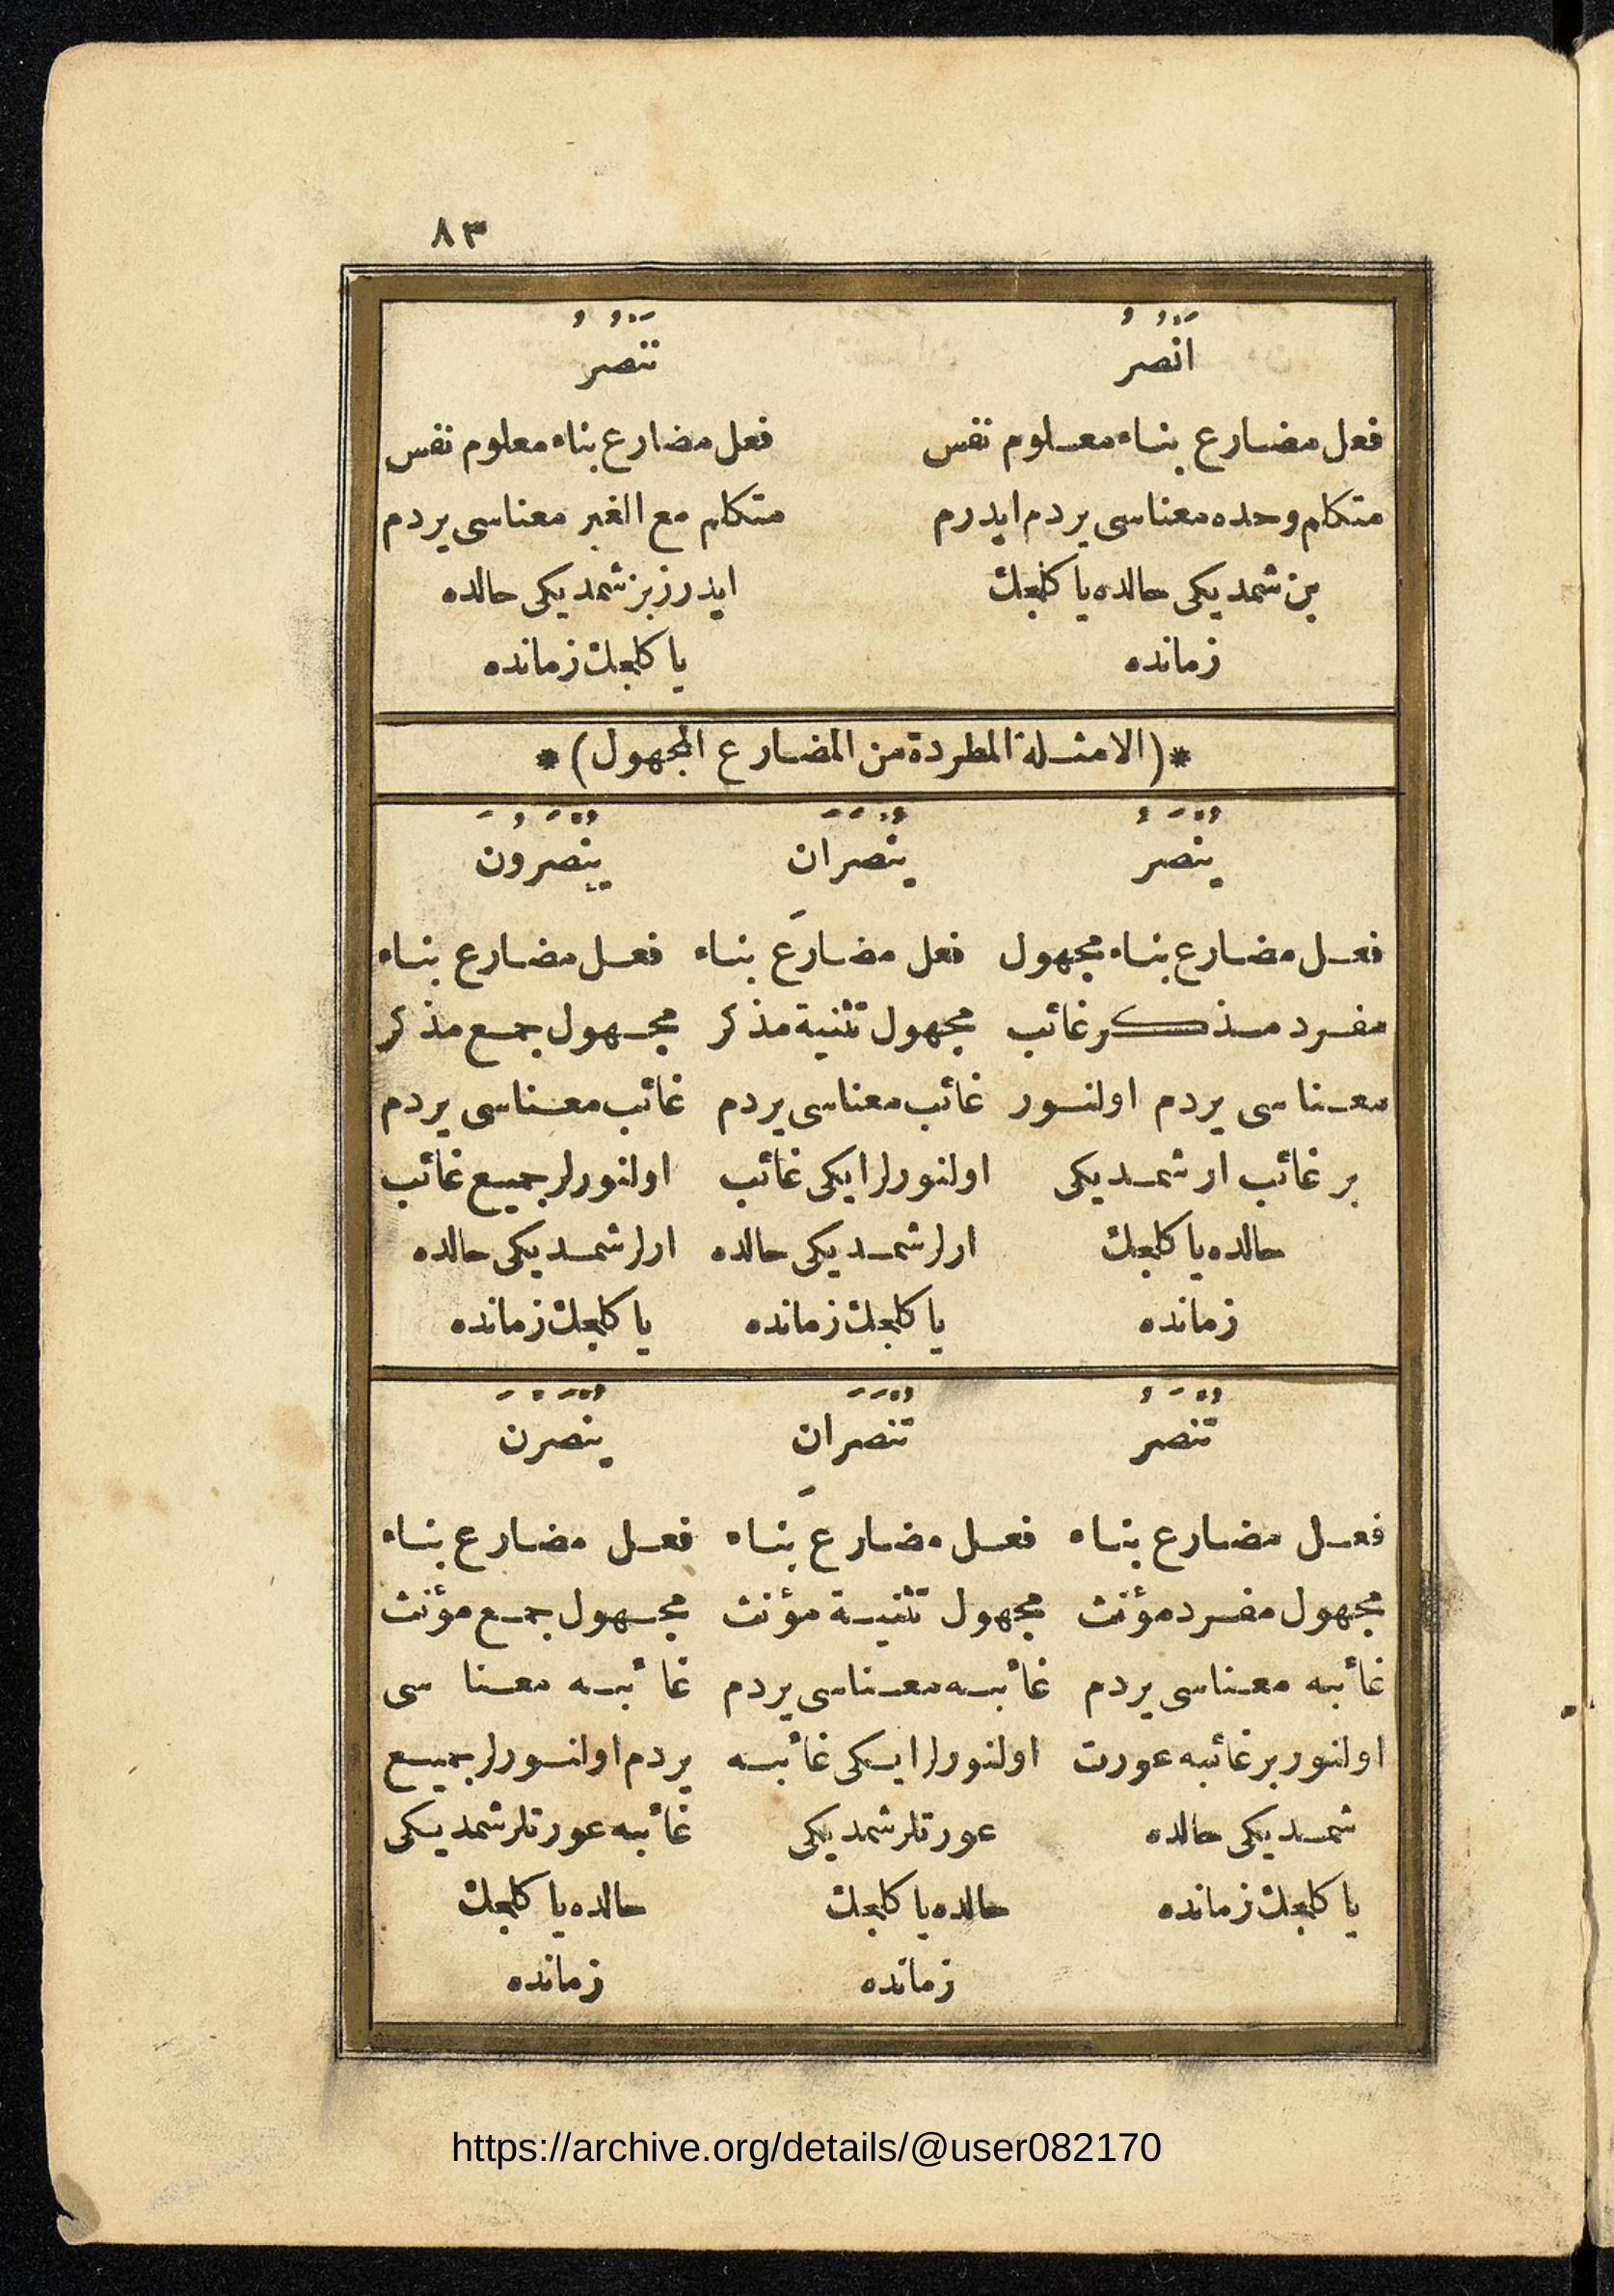 ٨٣
اَنْصُرُ
فعل مضارع بناء معلوم نفس
متكلم وحده معناسى يردم ايدرم
بن شمديكى حالده يا كلجك
زمانده
نَنْصُرُ
فعل مضارع بناء معلوم نفس
متكلم مع الغير معناسى يردم
ايدرز بز شمديكى حالده
يا كلجك زمانده
*(الامثلة المطردة من المضارع المجهول)*
يُنْصَرُ
فعل مضارع بناء مجهول
مفرد مذكر غائب
معناسى يردم اولنور
بر غائب ار شمديكى
حالده يا كلجك
زمانده
يُنْصَرَانِ
فعل مضارع بناء
مجهول تثنية مذكر
غائب معناسى يردم
اولنورلر ايكى غائب
ارلر شمديكى حالده
يا كلجك زمانده
يُنْصَرُونَ
فعل مضارع بناء
مجهول جمع مذكر
غائب معناسى يردم
اولنورلر جميع غائب
ارلر شمديكى حالده
يا كلجك زمانده
تُنْصَرُ
فعل مضارع بناء
مجهول مفرد مؤنث
غائبه معناسى يردم
اولنور بر غائبه عورت
شمديكى حالده
يا كلجك زمانده
تُنْصَرَانِ
فعل مضارع بناء
مجهول تثنية مؤنث
غائبه معناسى يردم
اولنورلر ايكى غائبه
عورتلر شمديكى
حالده يا كلجك
زمانده
يُنْصَرْنَ
فعل مضارع بناء
مجهول جمع مؤنث
غائبه معناسى
يردم اولنورلر جميع
غائبه عورتلر شمديكى
حالده يا كلجك
زمانده
https://archive.org/details/@user082170